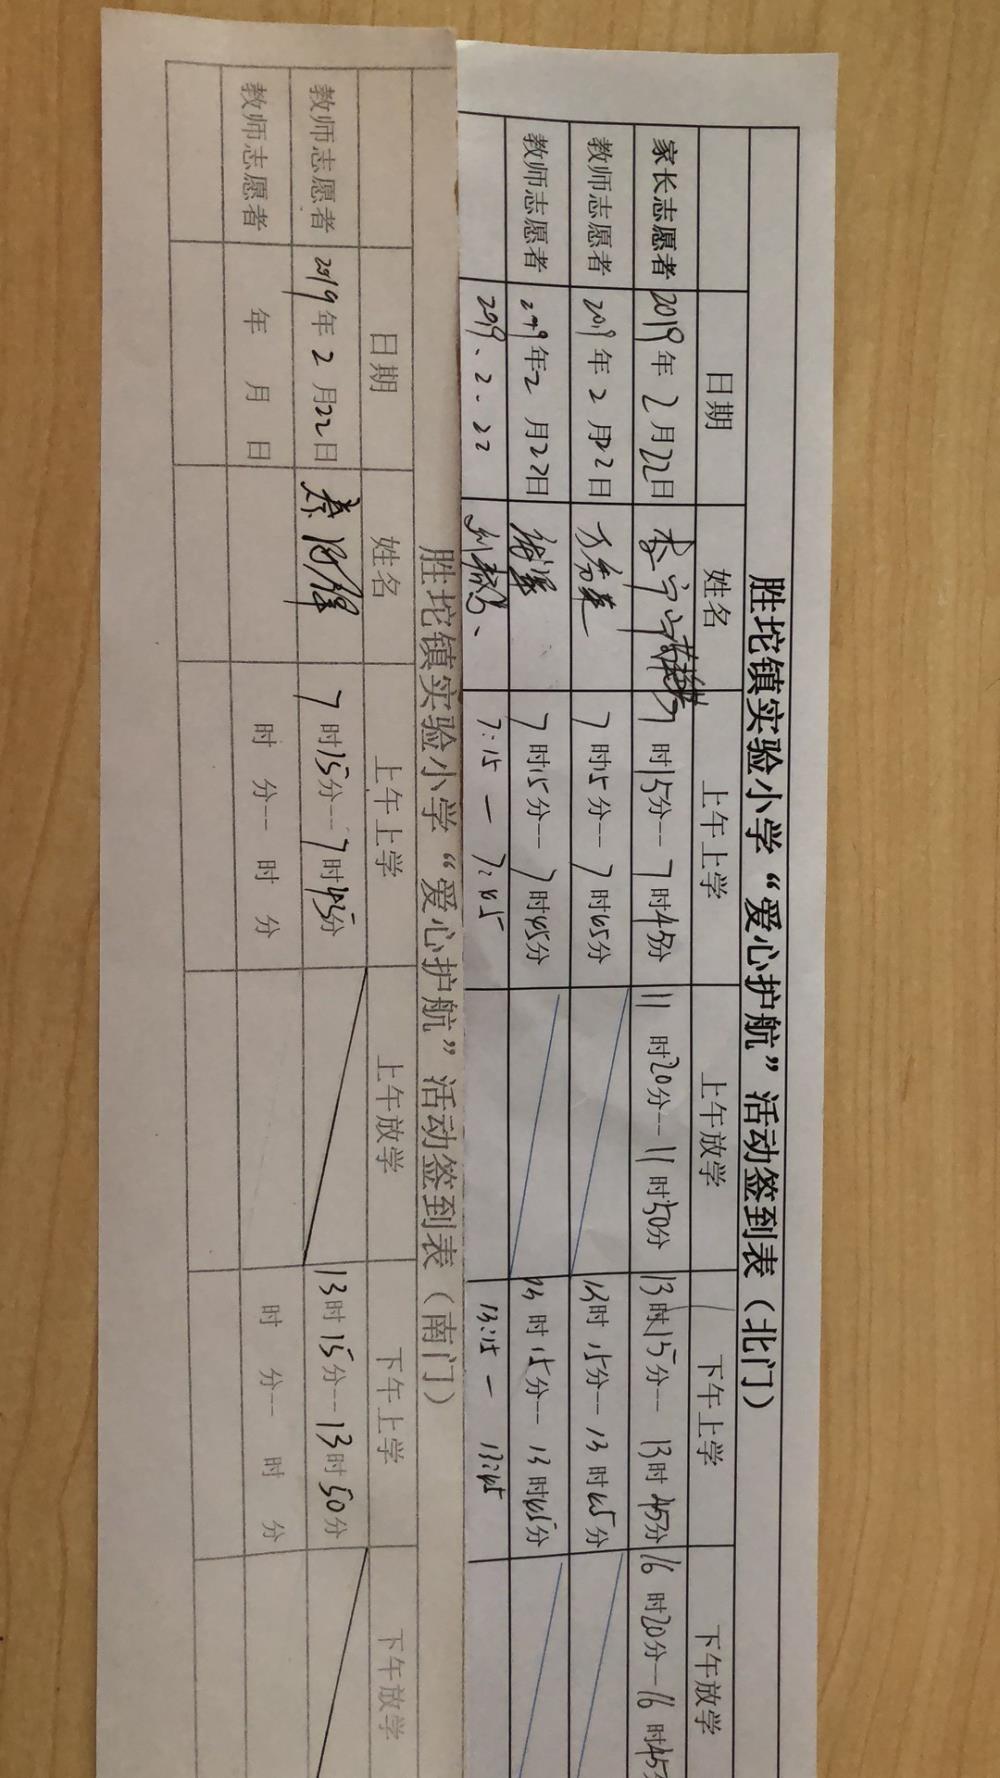 胜坨镇实验小学“爱心护航”活动签到表（北门）
日期 姓名 上午上学 上午放学 下午上学 下午放学
家长志愿者 2019年2月22日 李宁宁 7时15分--7时45分 11时20分--11时50分 13时15分--13时45分 16时20分--16时45分
教师志愿者 2019年2月22日 7时15分--7时45分 13时15分--13时45分
教师志愿者 2019年2月22日 7时15分--7时45分 13时15分--13时45分
2019.2.22 7:15—7:45 13:15—13:45
胜坨镇实验小学“爱心护航”活动签到表（南门）
日期 姓名 上午上学 上午放学 下午上学 下午放学
教师志愿者 2019年2月22日 7时15分--7时45分 13时15分--13时50分
教师志愿者 年 月 日 时 分-- 时 分 时 分-- 时 分